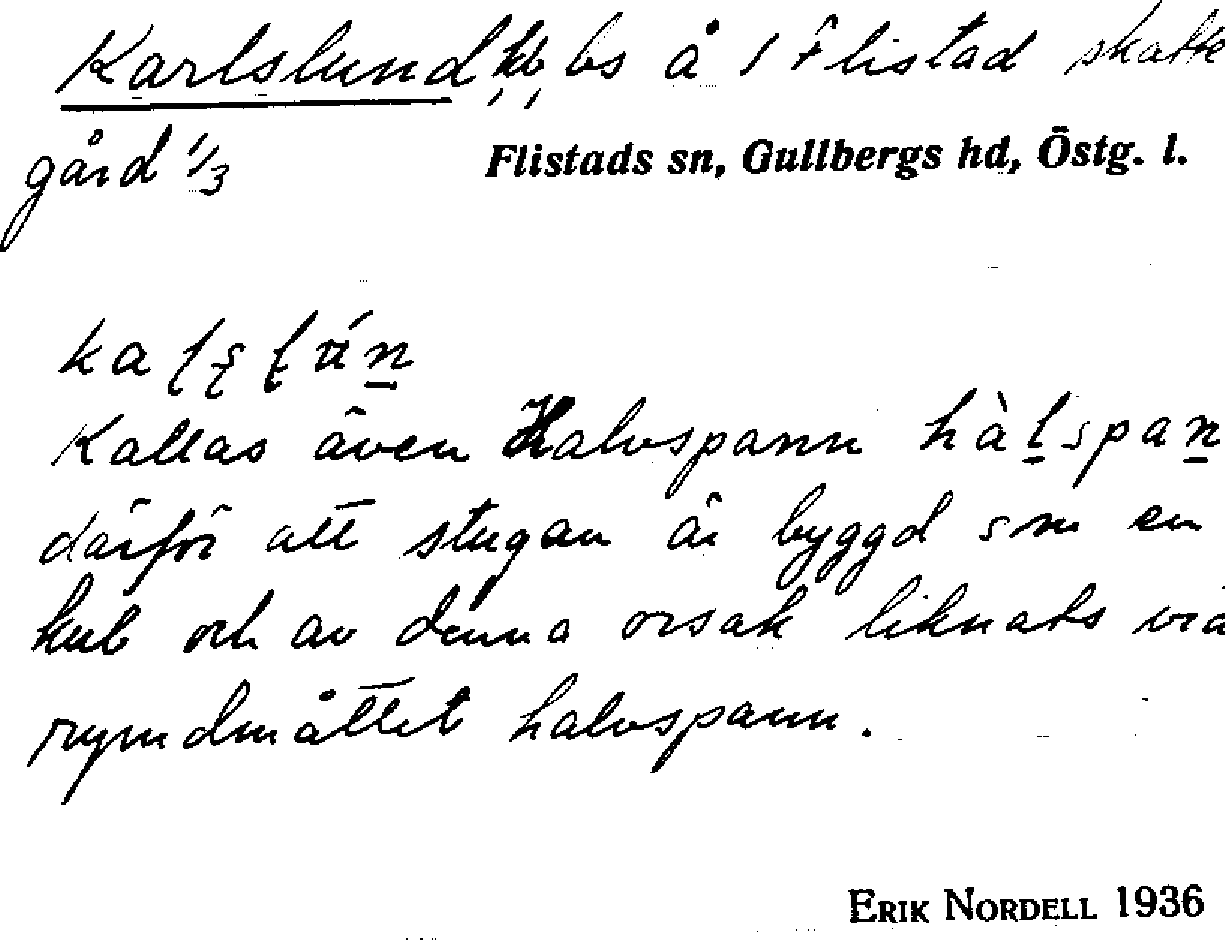 Karlslund, bs å 1 Flistad skatte
gård 1/3
Flistads sn, Gullbergs hd, Östg. l.
Kallas även Halvspann hàlspan
därför att stugan är byggd som en
kub och av denna orsak liknats vid
rymdmåttet halvspann.
ERIK NORDELL 1936